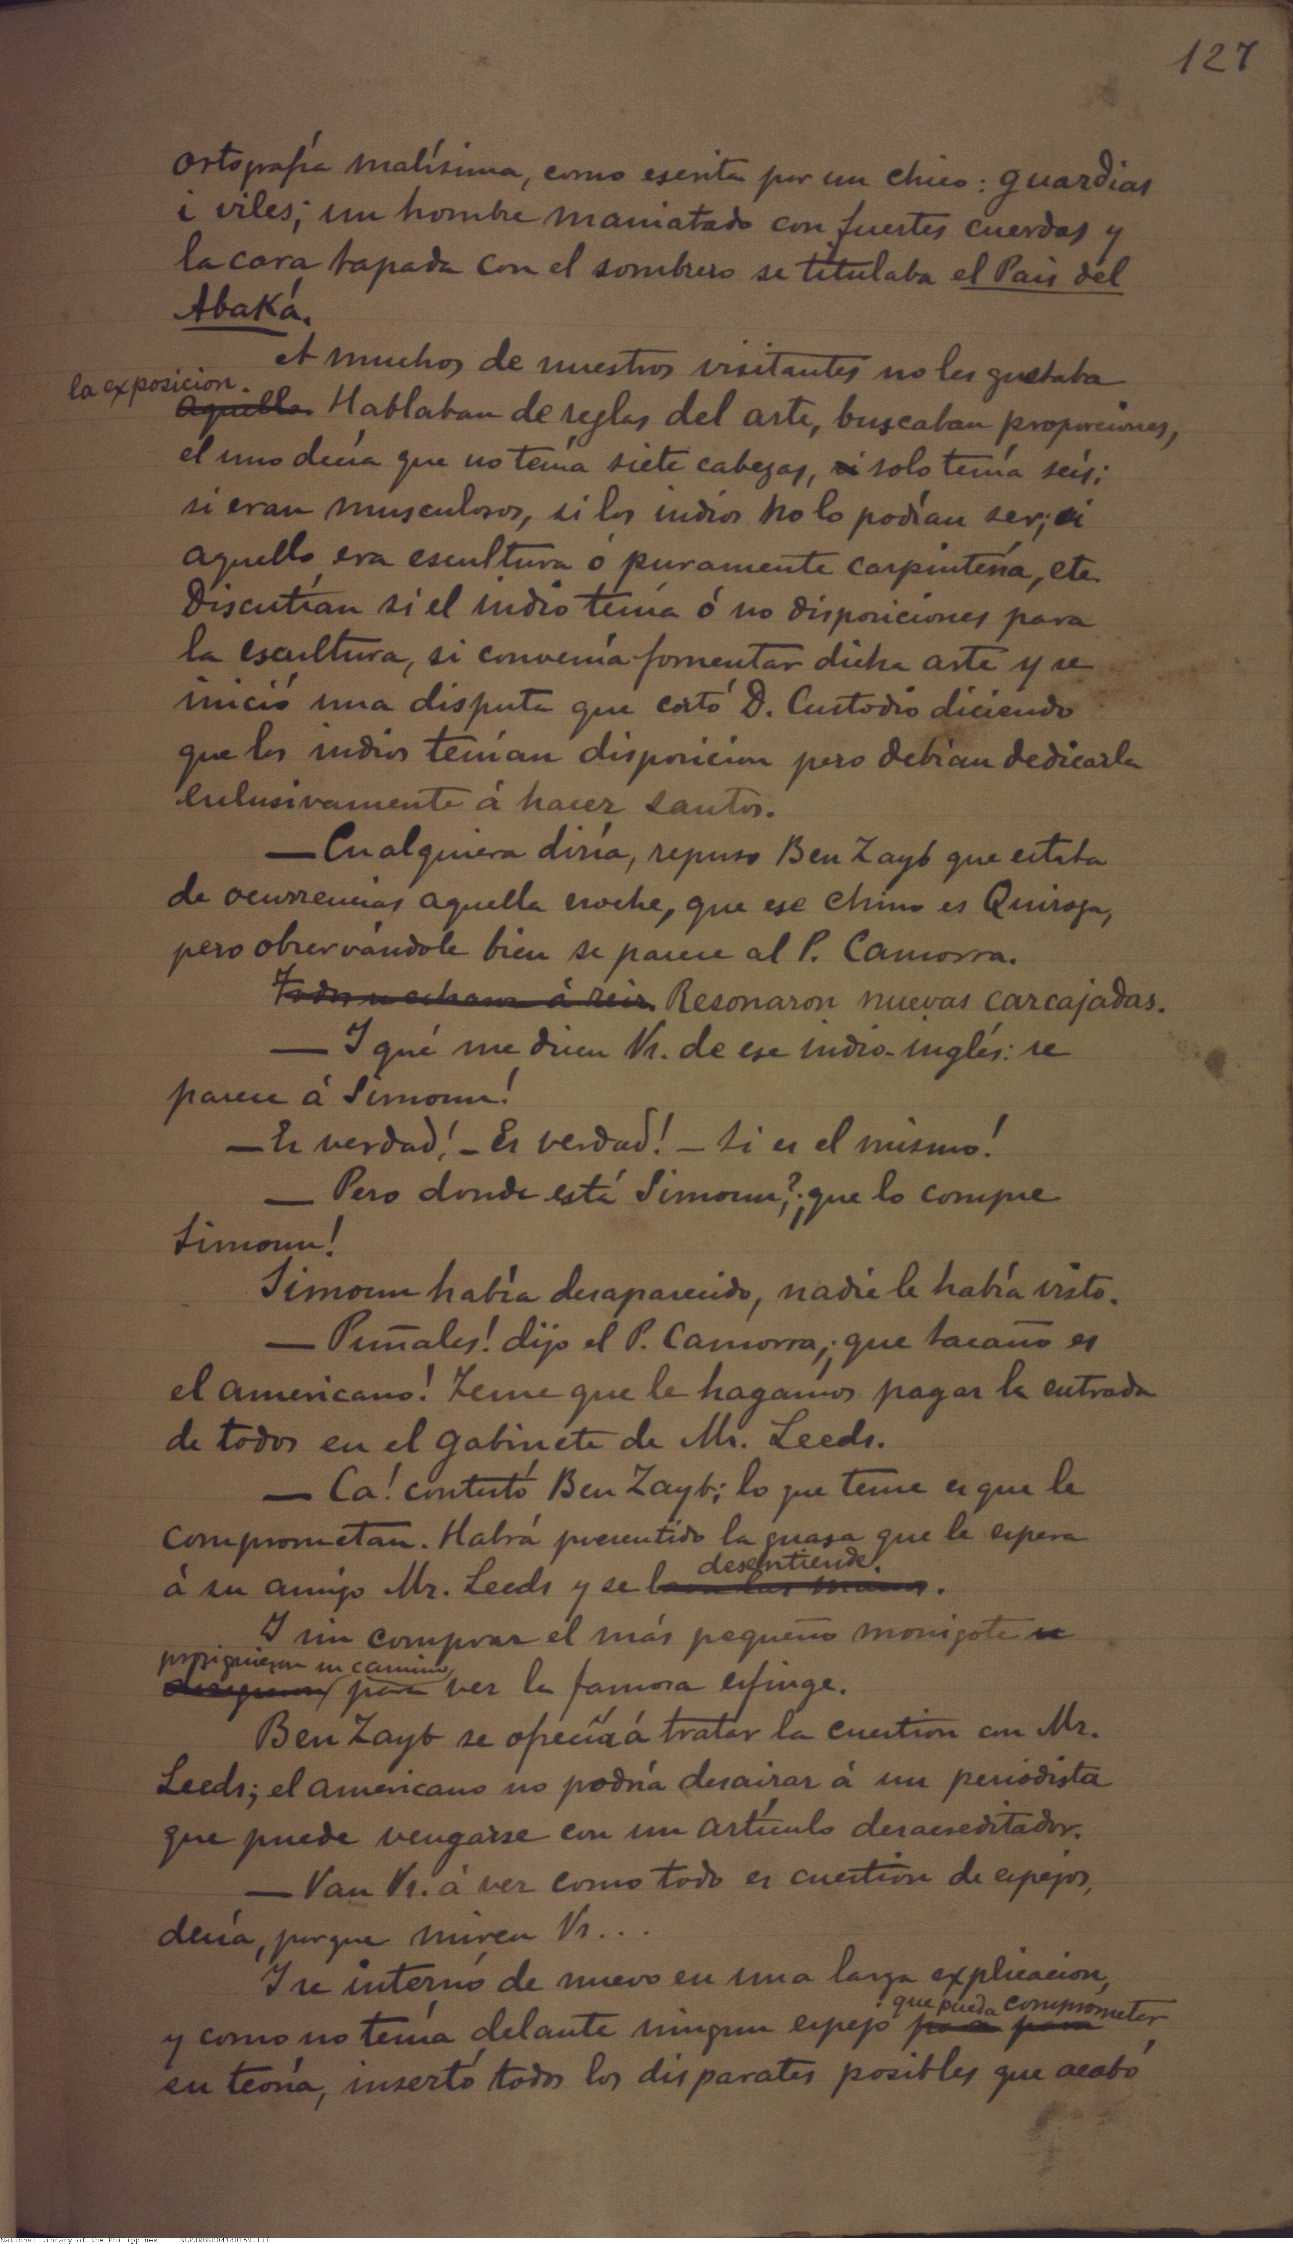 127
ortografía malísima, como escrita por un chico: guardias
i viles; un hombre maniatado con fuertes cuerdas y
la cara tapada con el sombrero se titulaba el Pais del
Abaká.
A muchos de nuestros visitantes no les gustaba
la exposicion.
Aquello. Hablaban de reglas del arte, buscaban proporciones,
el uno decía que no tenía siete cabezas, si solo tenía seis;
si eran musculosos, si los indios no lo podían ser; si
aquello era escultura ó puramente carpintería, etc.
Discutían si el indio tenía ó no disposiciones para
la escultura, si convenía fomentar dicha arte y se
inició una disputa que cortó D. Custodio diciendo
que los indios tenían disposicion pero debían dedicarla
exlusivamente á hacer santos.
— Cualquiera diría, repuso Ben Zayb que estaba
de ocurrencias aquella noche, que ese chino es Quiroga,
pero observándole bien se parece al P. Camorra.
Todos se echaron á reir. Resonaron nuevas carcajadas.
— I qué me dicen Vs. de ese indio-inglés: se
parece á Simoun!
— Es verdad! – Es verdad! – Si es el mismo!
— Pero donde está Simoun?; que lo compre
Simoun!
Simoun había desaparecido, nadie le había visto.
— Puñales! dijo el P. Camorra, ¡que tacaño es
el americano! Teme que le hagamos pagar la entrada
de todos en el gabinete de Mr. Leeds.
— Ca! contestó Ben Zayb; lo que teme es que le
comprometan. Habrá presentido la guasa que le espera
desentiende.
á su amigo Mr. Leeds y se lava las manos.
I sin comprar el más pequeño monigote se
prosiguieron su camino,
para ver la famosa esfinge.
Ben Zayb se ofrecía á tratar la cuestion con Mr.
Leeds; el americano no podría desairar á un periodista
que puede vengarse con un artículo desacreditador.
— Van Vs. á ver como todo es cuestion de espejos,
decía, porque miren Vs...
I se internó de nuevo en una larga explicacion,
que pueda comprometer
y como no tenía delante ningun espejo
su teoría, insertó todos los disparates posibles que acabó